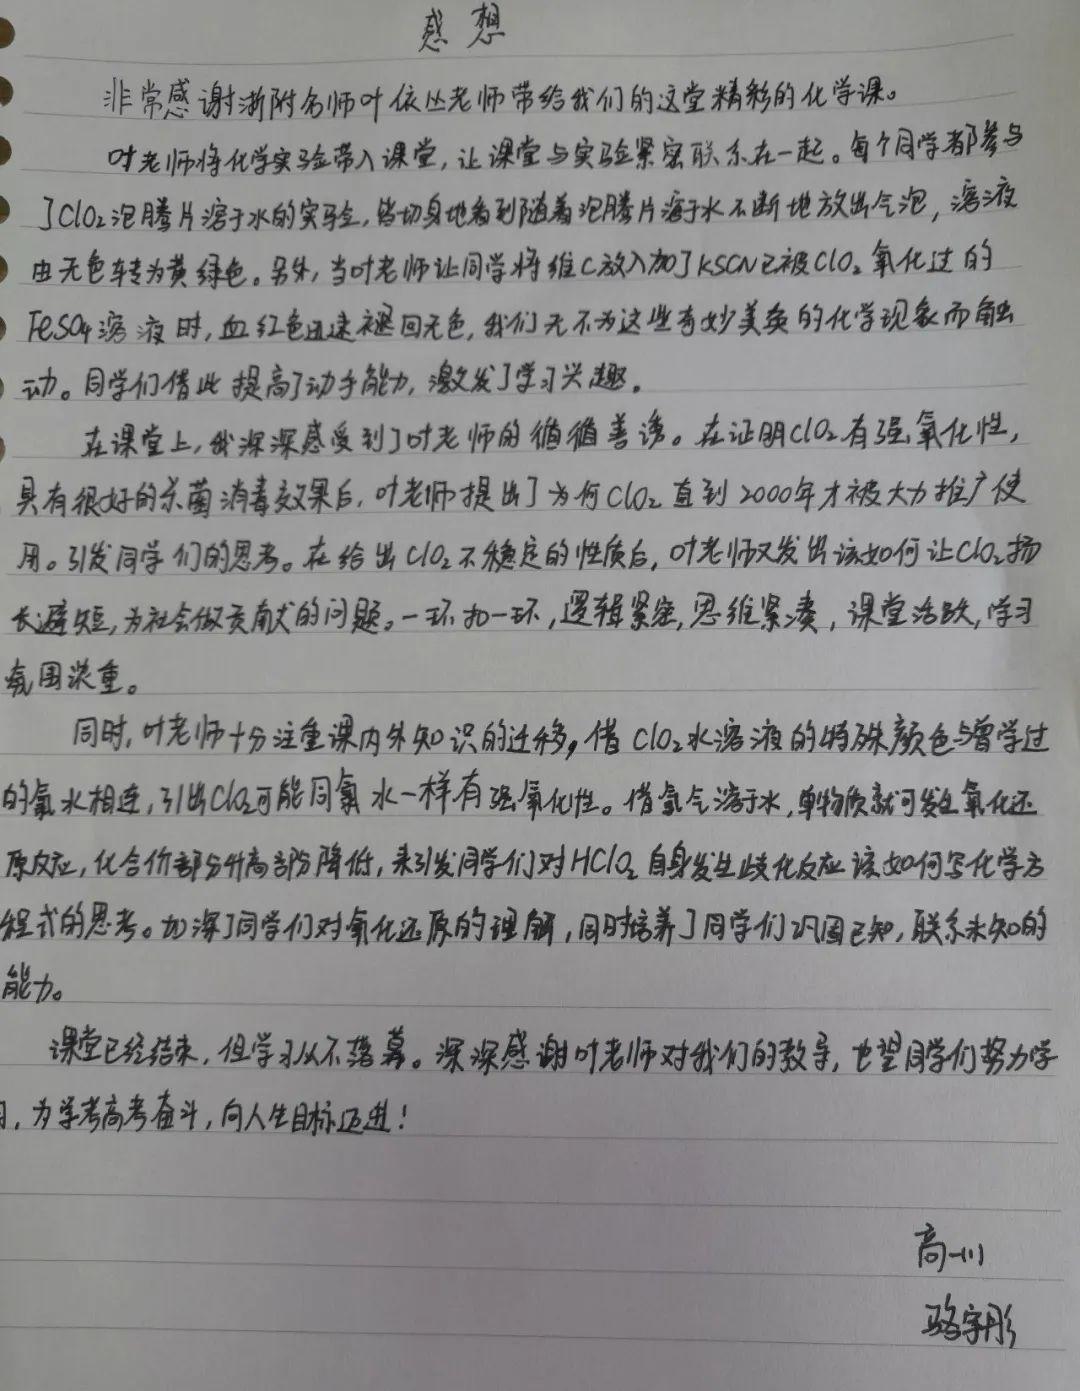 感想
非常感谢浙附名师叶依丛老师带给我们的这堂精彩的化学课。
叶老师将化学实验带入课堂，让课堂与实验紧密联系在一起。每个同学都参与
了ClO₂泡腾片溶于水的实验，皆切身地看到随着泡腾片溶于水不断地放出气泡，溶液
由无色转为黄绿色。另外，当叶老师让同学将维C放入加了KSCN已被ClO₂氧化过的
FeSO₄溶液时，血红色迅速褪回无色，我们无不为这些奇妙美奂的化学现象而触
动。同学们借此提高了动手能力，激发了学习兴趣。
在课堂上，我深深感受到了叶老师的循循善诱。在证明ClO₂有强氧化性，
具有很好的杀菌消毒效果后，叶老师提出了为何ClO₂直到2000年才被大力推广使
用。引发同学们的思考。在给出ClO₂不稳定的性质后，叶老师又发出该如何让ClO₂扬
长避短，为社会做贡献的问题。一环扣一环，逻辑紧密，思维紧凑，课堂活跃，学习
氛围浓重。
同时，叶老师十分注重课内外知识的迁移，借ClO₂水溶液的特殊颜色与曾学过
的氯水相连，引出ClO₂可能同氯水一样有强氧化性。借氯气溶于水，单物质就可发生氧化还
原反应，化合价部分升高部分降低，来引发同学们对HClO₂自身发生歧化反应该如何写化学方
程式的思考。加深了同学们对氧化还原的理解，同时培养了同学们巩固已知，联系未知的
能力。
课堂已经结束，但学习从不落幕。深深感谢叶老师对我们的教导，也望同学们努力学
习，为学考高考奋斗，向人生目标迈进！
高一(1)
骆宇彤